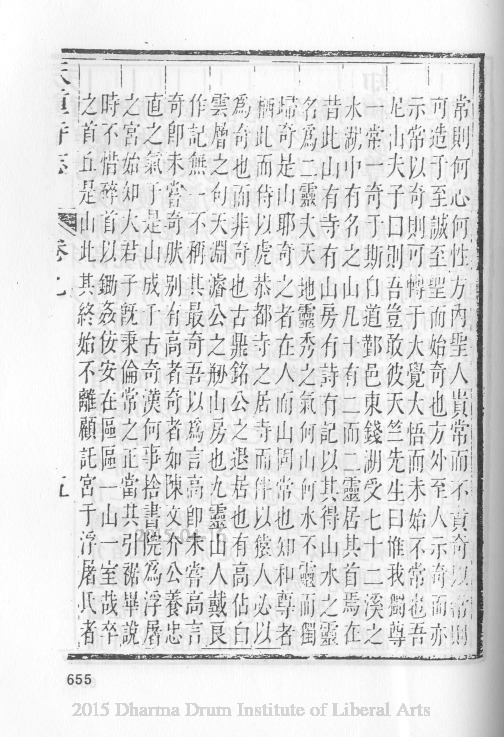 常則何心何性方內聖人貴常而不貴奇以常則
可造乎至誠至聖而始奇也方外至人示奇而亦
示常以奇則可轉于大覺大悟而未始不常也吾
尼山夫子曰則吾豈敢彼天竺先生曰惟我獨尊
一常一奇于斯自道鄞邑東錢湖受七十二溪之
水湖中有名之山凡十有二而二靈居其首焉在
昔此山有寺有山房有詩有記以其得山水之靈
名為二靈夫天地靈秀之氣何山何水不靈而獨
埽奇是山耶奇之者在人而山固常也知和尊者
棲此而侍以虎恭都寺之居寺而伴以獵人必以
為奇也而非奇也古鼎銘公之退居也有高佔白
雲層之句天淵濬公之刱山房也九靈山人戴良
作記無一不稱其最奇吾以為言高即未嘗高言
奇即未嘗奇肰別有高者奇者如陳文介公養忠
直之氣于是山成千古奇漢何事捨書院為浮屠
之宮始知大君子旣秉倫常之正當其引裾畢說
時不惜碎首以鋤姦佞安在區區一山一室哉卒
之首丘是山此其終始不離顧託宮于浮屠氏者
天童寺志 卷九 五
655
2015 Dharma Drum Institute of Liberal Arts